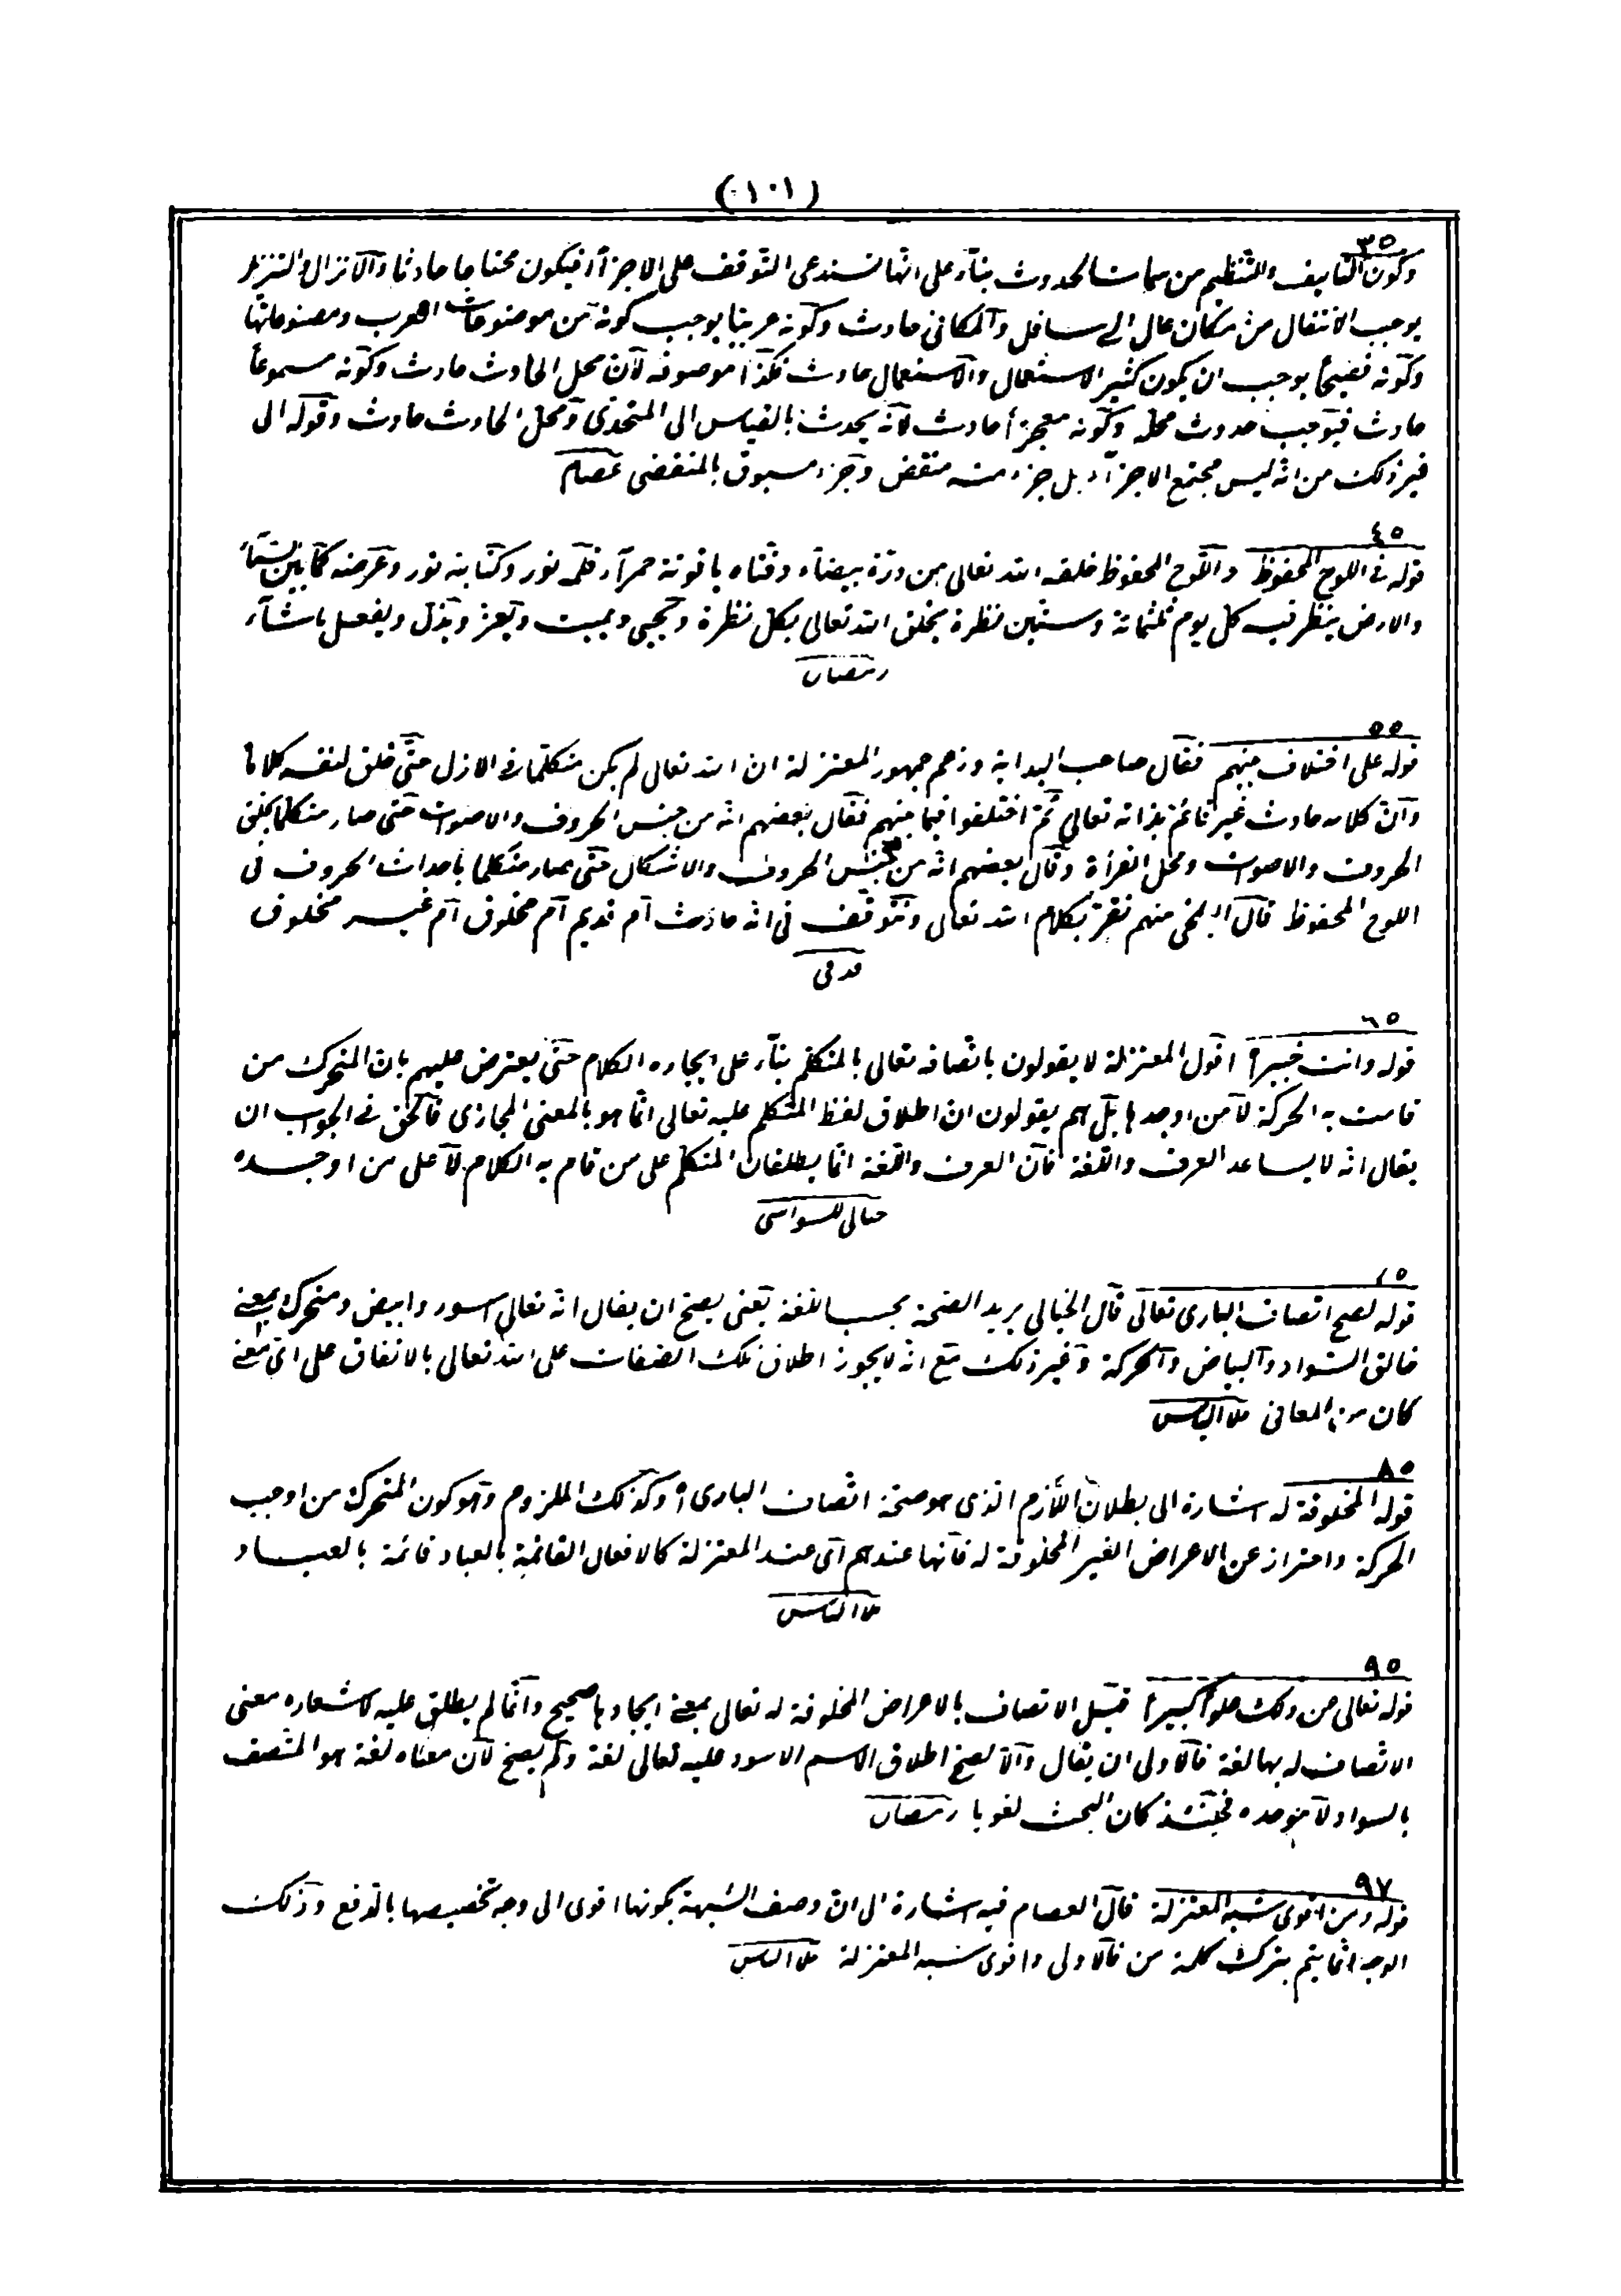 (١٠١)
٣٥
وكون التأليف والتنظيم من سمات الحدوث بنآء على انها تستدعى التوقف على الاجزآء فيكون محتاجا حادثا والانزال والتنزيل
يوجب الانتقال من مكان عال الى سافل والمكانى حادث وكونه عربيا يوجب كونه من موضوعات العرب ومصنوعاتها
وكونه فصيحا يوجب ان يكون كثير الاستعمال والاستعمال حادث فكذا موصوفه لان محل الحادث حادث وكونه مسموعا
حادث فيوجب حدوث محله وكونه معجزا حادث لانه يحدث بالقياس الى المتحدى ومحل الحادث حادث وقوله الى
غير ذلك من انه ليس مجتمع الاجزآء بل جزء منه منقض وجزء مسبوق بالمنقضى عصام
٤٥
قوله فى اللوح المحفوظ واللوح المحفوظ خلقه الله تعالى من درة بيضاء دفتاه ياقوتة حمرآء قلمه نور وكتابته نور وعرضه كما بين السمآء
والارض ينظر فيه كل يوم ثلثمائة وستين نظرة يخلق الله تعالى بكل نظرة ويحيى ويميت ويعز ويذل ويفعل ما شآء
رمضان
٥٥
قوله على اختلاف بينهم فقال صاحب البداية وزعم جمهور المعتزلة ان الله تعالى لم يكن متكلما فى الازل حتى خلق لنفسه كلاما
وان كلامه حادث غير قائم بذاته تعالى ثم اختلفوا فيما بينهم فقال بعضهم انه من جنس الحروف والاصوات حتى صار متكلما بخلق
الحروف والاصوات ومحل القرأة وقال بعضهم انه من جنس الحروف والاشكال حتى صار متكلما باحداث الحروف فى
اللوح المحفوظ قال البلخى منهم نقر بكلام الله تعالى ونتوقف فى انه حادث ام قديم ام مخلوق ام غير مخلوق
٦٥
قوله وانت خبير اقول المعتزلة لا يقولون باتصافه تعالى بالمتكلم بنآء على ايجاده الكلام حتى يعترض عليهم بان المتحرك من
قامت به الحركة لا من اوجدها بل هم يقولون ان اطلاق لفظ المتكلم عليه تعالى انما هو بالمعنى المجازى فالحق فى الجواب ان
يقال انه لا يساعد العرف واللغة فان العرف واللغة انما يطلقان المتكلم على من قام به الكلام لا على من اوجده
خيالى للسواسى
قوله لصح اتصاف البارى تعالى قال الخيالى يريد الصحة بحسب اللغة يعنى يصح ان يقال انه تعالى اسود وابيض ومتحرك بمعنى
خالق السواد والبياض والحركة وغير ذلك مع انه لا يجوز اطلاق تلك الصفات على الله تعالى بالاتفاق على اى معنى
كان من المعانى ملا الياس
٨٥
قوله المخلوقة له اشارة الى بطلان اللازم الذى هو صحة اتصاف البارى اه وكذلك الملزوم وهو كون المتحرك من اوجب
الحركة واحتراز عن الاعراض الغير المخلوقة له فانها عندهم اى عند المعتزلة كالافعال القائمة بالعباد قائمة بالعباد
ملا الياس
٩٥
قوله تعالى عن ذلك علوا كبيرا قيل الاتصاف بالاعراض المخلوقة له تعالى بمعنى ايجادها صحيح وانما لم يطلق عليه لاشعاره معنى
الاتصاف له بها لغة فالاولى ان يقال والا لصح اطلاق الاسم الاسود عليه تعالى لغة ولم يصح لان معناه لغة هو المتصف
بالسواد لا موجده فحينئذ كان البحث لغويا رمضان
٩٧
قوله ومن اقوى شبه المعتزلة قال العصام فيه اشارة الى ان وصف الشبهة بكونها اقوى الى وجه تخصيصها بالدفع وذلك
الوجه انما يتم بترك كلمة من فالاولى واقوى شبه المعتزلة ملا الياس